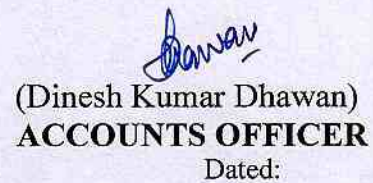 Dhawan
(Dinesh Kumar Dhawan)
ACCOUNTS OFFICER
Dated: